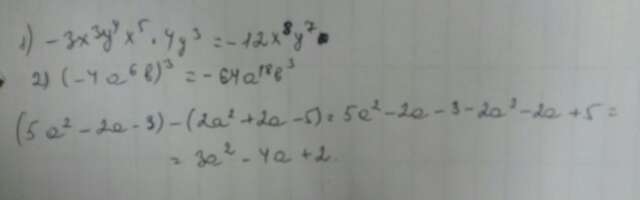 1) -3x³y⁴x⁵ · 4y³ = -12x⁸y⁷
2) (-4a⁶b)³ = -64a¹⁸b³
(5a² - 2a - 3) - (2a² + 2a - 5) = 5a² - 2a - 3 - 2a² - 2a + 5 =
= 3a² - 4a + 2.